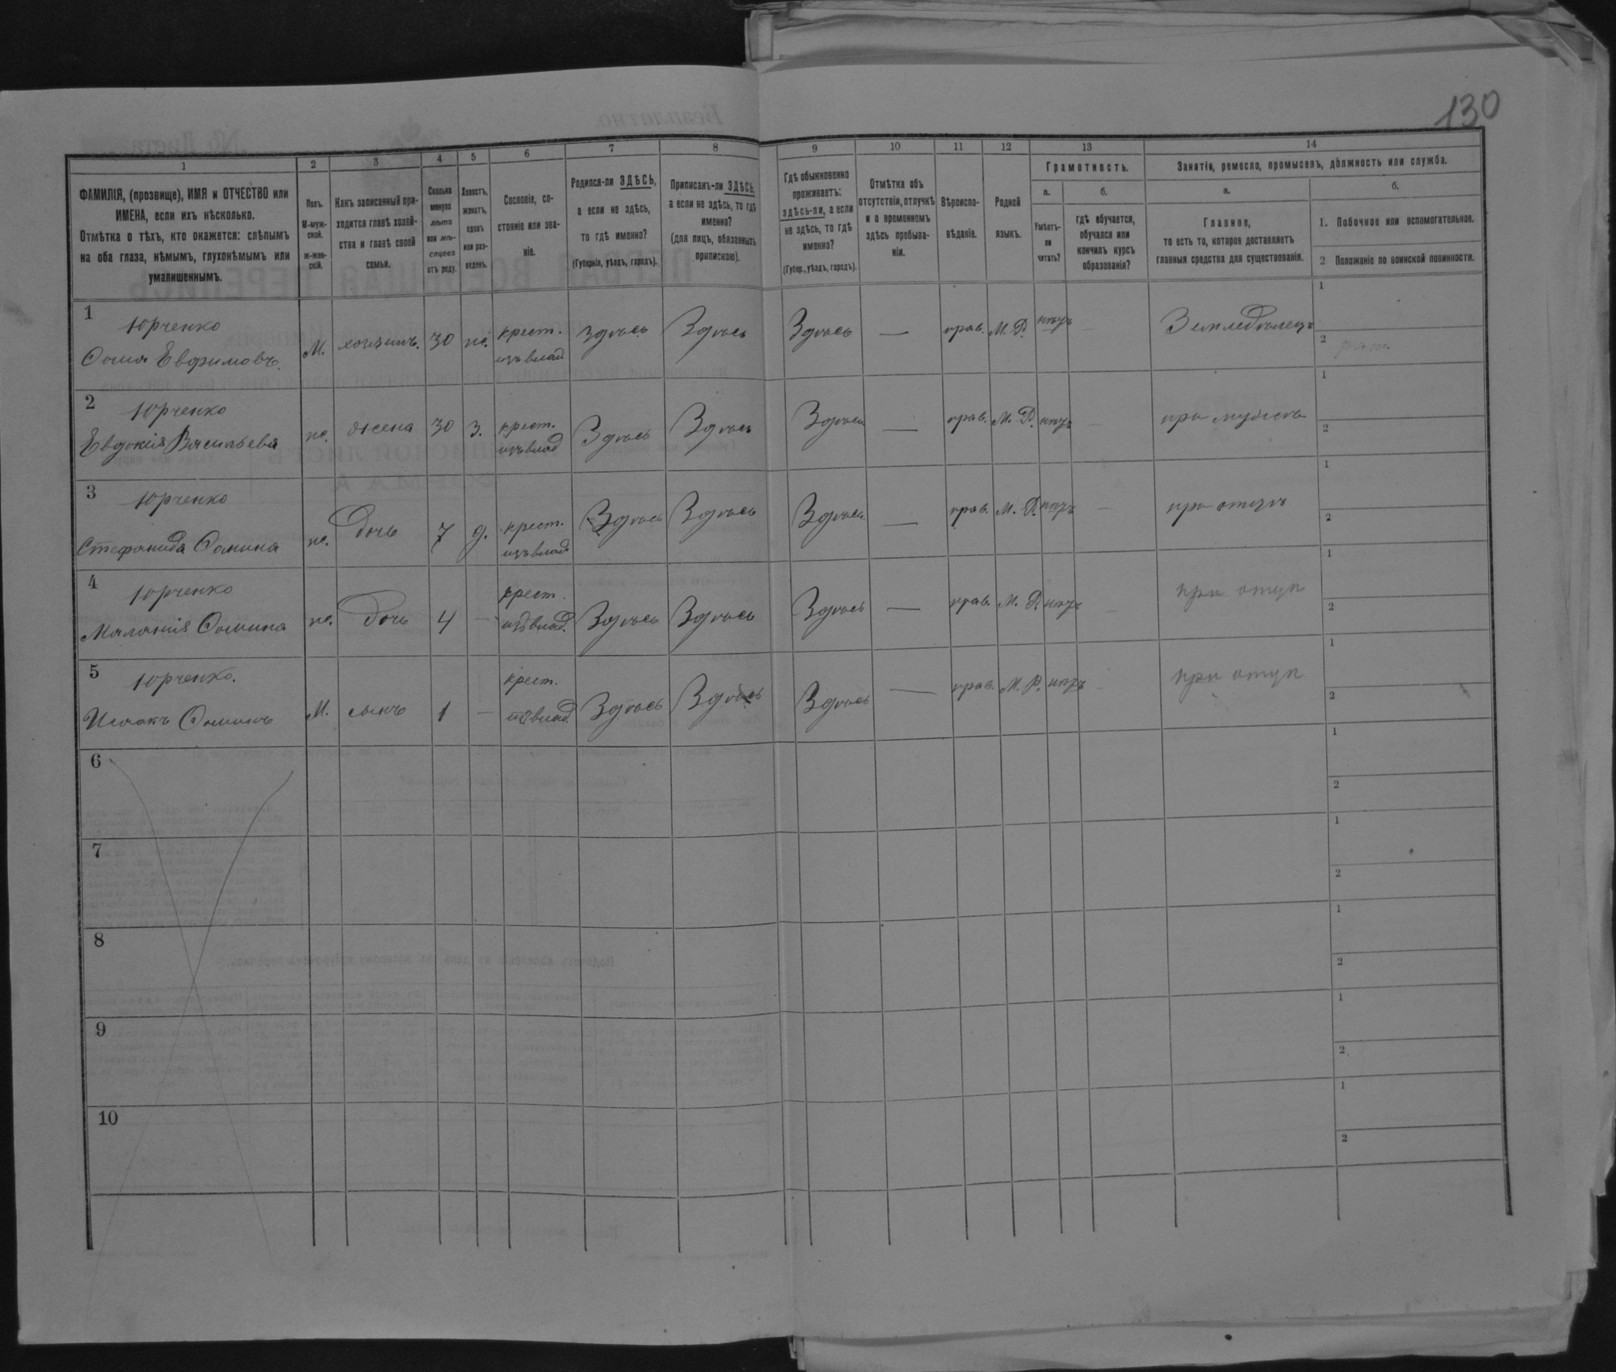 130
1 2 3 4 5 6 7 8 9 10 11 12 13 14
ФАМИЛІЯ, (прозвище), ИМЯ и ОТЧЕСТВО или
ИМЕНА, если ихъ нѣсколько.
Отмѣтка о тѣхъ, кто окажется: слѣпымъ
на оба глаза, нѣмымъ, глухонѣмымъ или
умалишеннымъ.
Полъ.
М-муж-
ской.
ж-жен-
скій.
Какъ записанный при-
ходится главѣ хозяй-
ства и главѣ своей
семьи.
Сколько
минуло
лѣтъ
или мѣ-
сяцевъ
отъ роду.
Холостъ,
женатъ,
вдовъ
или раз-
веденъ.
Сословіе, со-
стояніе или зва-
ніе.
Родился-ли ЗДѢСЬ,
а если не здѣсь,
то гдѣ именно?
(Губернія, уѣздъ, городъ).
Приписанъ-ли ЗДѢСЬ,
а если не здѣсь, то гдѣ
именно?
(для лицъ, обязанныхъ
припискою).
Гдѣ обыкновенно
проживаетъ:
здѣсь-ли, а если
не здѣсь, то гдѣ
именно?
(Губер., уѣздъ, городъ).
Отмѣтка объ
отсутствіи, отлучкѣ
и о временномъ
здѣсь пребыва-
ніи.
Вѣроиспо-
вѣданіе.
Родной
языкъ.
Грамотность.
а.
Умѣетъ-
ли
читать?
б.
гдѣ обучается,
обучался или
кончилъ курсъ
образованія?
Занятія, ремесло, промыселъ, должность или служба.
а.
Главное,
то есть то, которое доставляетъ
главныя средства для существованія.
б.
1. Побочное или вспомогательное.
2 Положеніе по воинской повинности.
1
Юрченко
Ѳома Евфимовъ. М. хозяинъ. 30 ж. крест.
изъ влад Здѣсь Здѣсь Здѣсь — прав. М. Р. нѣтъ — Земледѣлецъ
1
2
2
Юрченко
Евдокія Васильева ж. жена 30 з. крест.
изъ влад Здѣсь Здѣсь Здѣсь — прав. М. Р. нѣтъ — при мужѣ
1
2
3
Юрченко
Стефанида Ѳомина ж. дочь 7 д. крест.
изъ влад Здѣсь Здѣсь Здѣсь — прав. М. Р. нѣтъ — при отцѣ
1
2
4
Юрченко
Маланія Ѳомина ж. дочь 4 — крест.
изъ влад. Здѣсь Здѣсь Здѣсь — прав. М. Р. нѣтъ — при отцѣ
1
2
5
Юрченко.
Исаакъ Ѳоминъ М. сынъ 1 — крест.
изъ влад Здѣсь Здѣсь Здѣсь — прав. М. Р. нѣтъ — при отцѣ
1
2
6
1
2
7
1
2
8
1
2
9
1
2
10
1
2